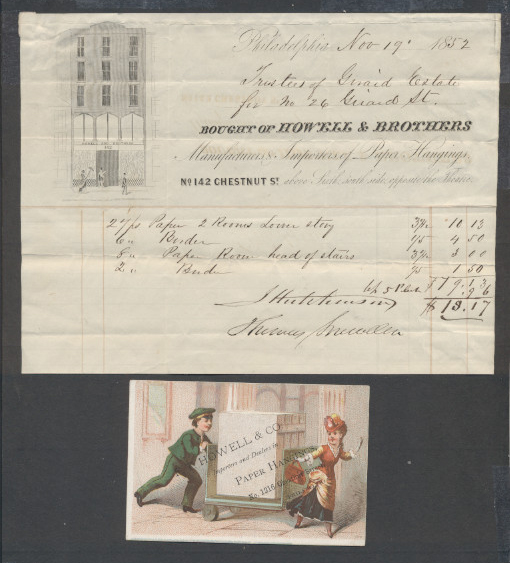 Philadelphia Nov 19 1852
Trustees of Girard Estate
for No 26 Girard St.
BOUGHT OF HOWELL & BROTHERS
Manufacturers & Importers of Paper Hangings,
No 142 CHESTNUT St. above Sixth, south side, opposite the Theatre.
27 ps Paper 2 Rooms Lower story 3/ 10 13
6 " Border 4 50
8 " Paper Room head of stairs 3/ 3 00
2 " Border 1 50
$19.13
96
J Hutchinson $18.17
Thomas
HOWELL & CO.
Importers and Dealers in
PAPER HANGINGS
No. 1216